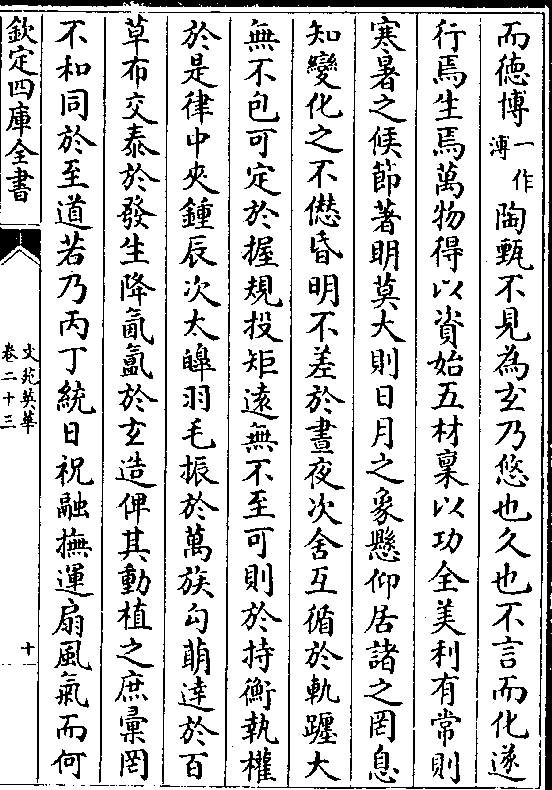 而德博一作溥陶甄不見為玄乃悠也久也不言而化遂
行焉生焉萬物得以資始五材稟以功全美利有常則
寒暑之候節著明莫大則日月之象懸仰居諸之罔息
知變化之不僁昏明不差於晝夜次舍互循於軌躔大
無不包可定於握規投矩遠無不至可則於持衡執權
於是律中夾鍾辰次太皥羽毛振於萬族勾萌達於百
草布交泰於發生降氤氳於玄造俾其動植之庶彚罔
不和同於至道若乃丙丁統日祝融撫運扇風氣而何
欽定四庫全書
文苑英華
卷二十三
十